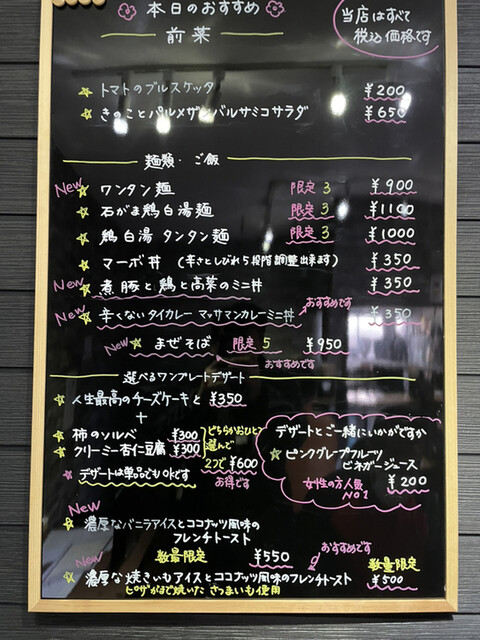 本日のおすすめ
当店はすべて
税込価格です
前菜
トマトのブルスケッタ ¥200
きのことパルメザンバルサミコサラダ ¥650
麺類・ご飯
New ワンタン麺 限定3 ¥900
石がま鶏白湯麺 限定3 ¥1100
鶏白湯タンタン麺 限定3 ¥1000
マーボ丼 (辛さとしびれ5段階調整出来ます) ¥350
New 煮豚と鶏と高菜のミニ丼 ¥350
おすすめです
New 辛くないタイカレー マッサマンカレーミニ丼 ¥350
New まぜそば 限定5 ¥950
おすすめです
選べるワンプレートデザート
人生最高のチーズケーキと ¥350
+
柿のソルベ ¥300
クリーミー杏仁豆腐 ¥300
どちらかおひとつ
選んで
2つで¥600
お得です
デザートは単品でもOKです
デザートとご一緒にいかがですか
ピンクグレプフルーツ
ビネガージュース
女性の方人気
NO1
¥200
New
濃厚なバニラアイスとココナッツ風味の
フレンチトースト
数量限定 ¥550
おすすめです
New
数量限定
濃厚な焼きいもアイスとココナッツ風味のフレンチトースト ¥500
ピザがまで焼いたさつまいも使用